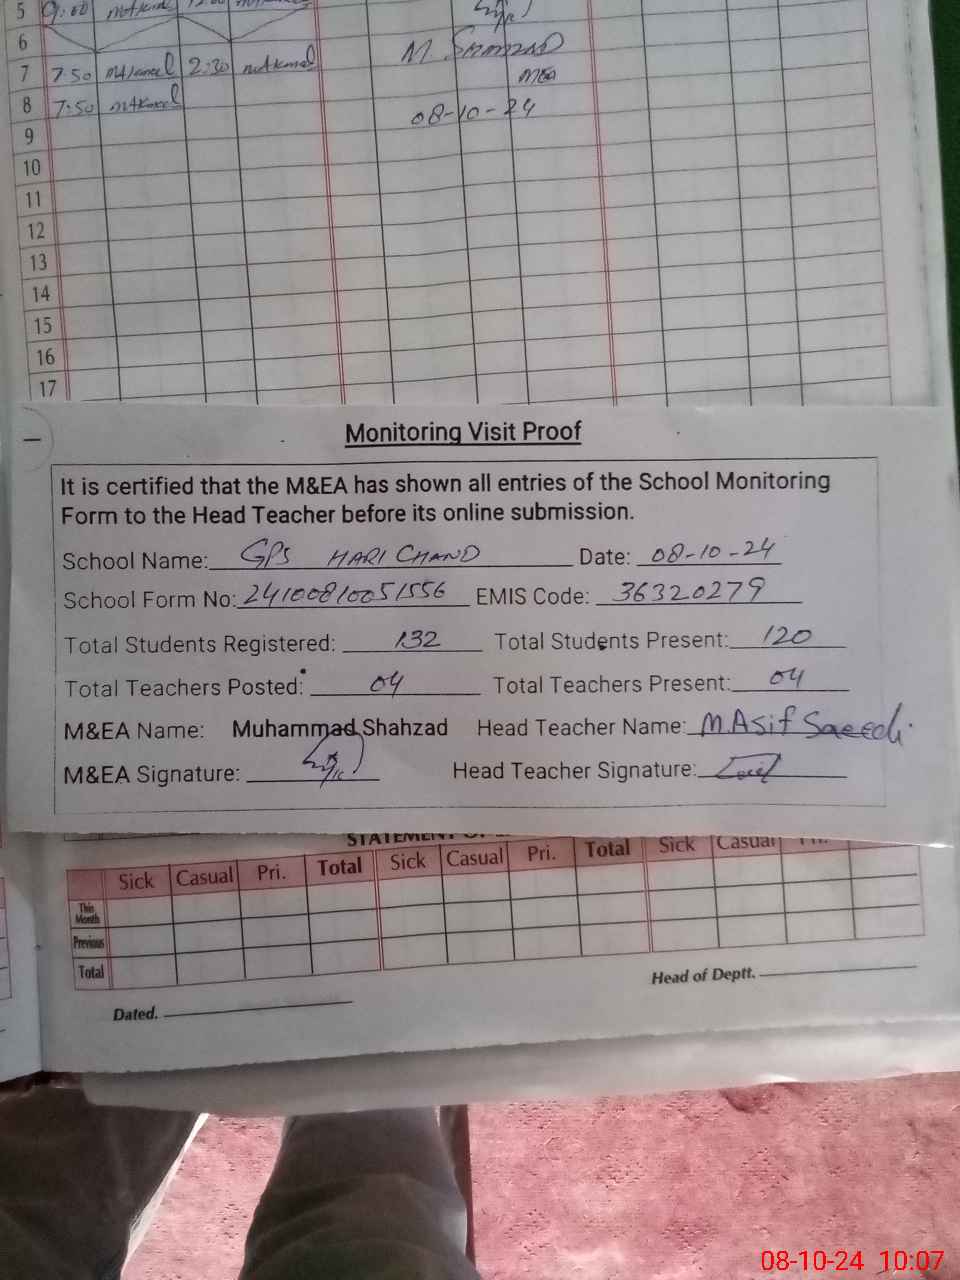 5 9:00
6
7 7:50 2:30 M Shahzad
MEA
8 7:50 08-10-24
9
10
11
12
13
14
15
16
17
Monitoring Visit Proof
It is certified that the M&EA has shown all entries of the School Monitoring
Form to the Head Teacher before its online submission.
School Name: GPS HARI CHAND Date: 08-10-24
School Form No: 24100810051556 EMIS Code: 36320279
Total Students Registered: 132 Total Students Present: 120
Total Teachers Posted: 04 Total Teachers Present: 04
M&EA Name: Muhammad Shahzad Head Teacher Name: M.Asif Saeedi
M&EA Signature: Head Teacher Signature:
STATEMENT
Sick Casual Pri. Total Sick Casual Pri. Total Sick Casual Pri.
This Month
Previous
Total
Head of Deptt.
Dated.
08-10-24 10:07